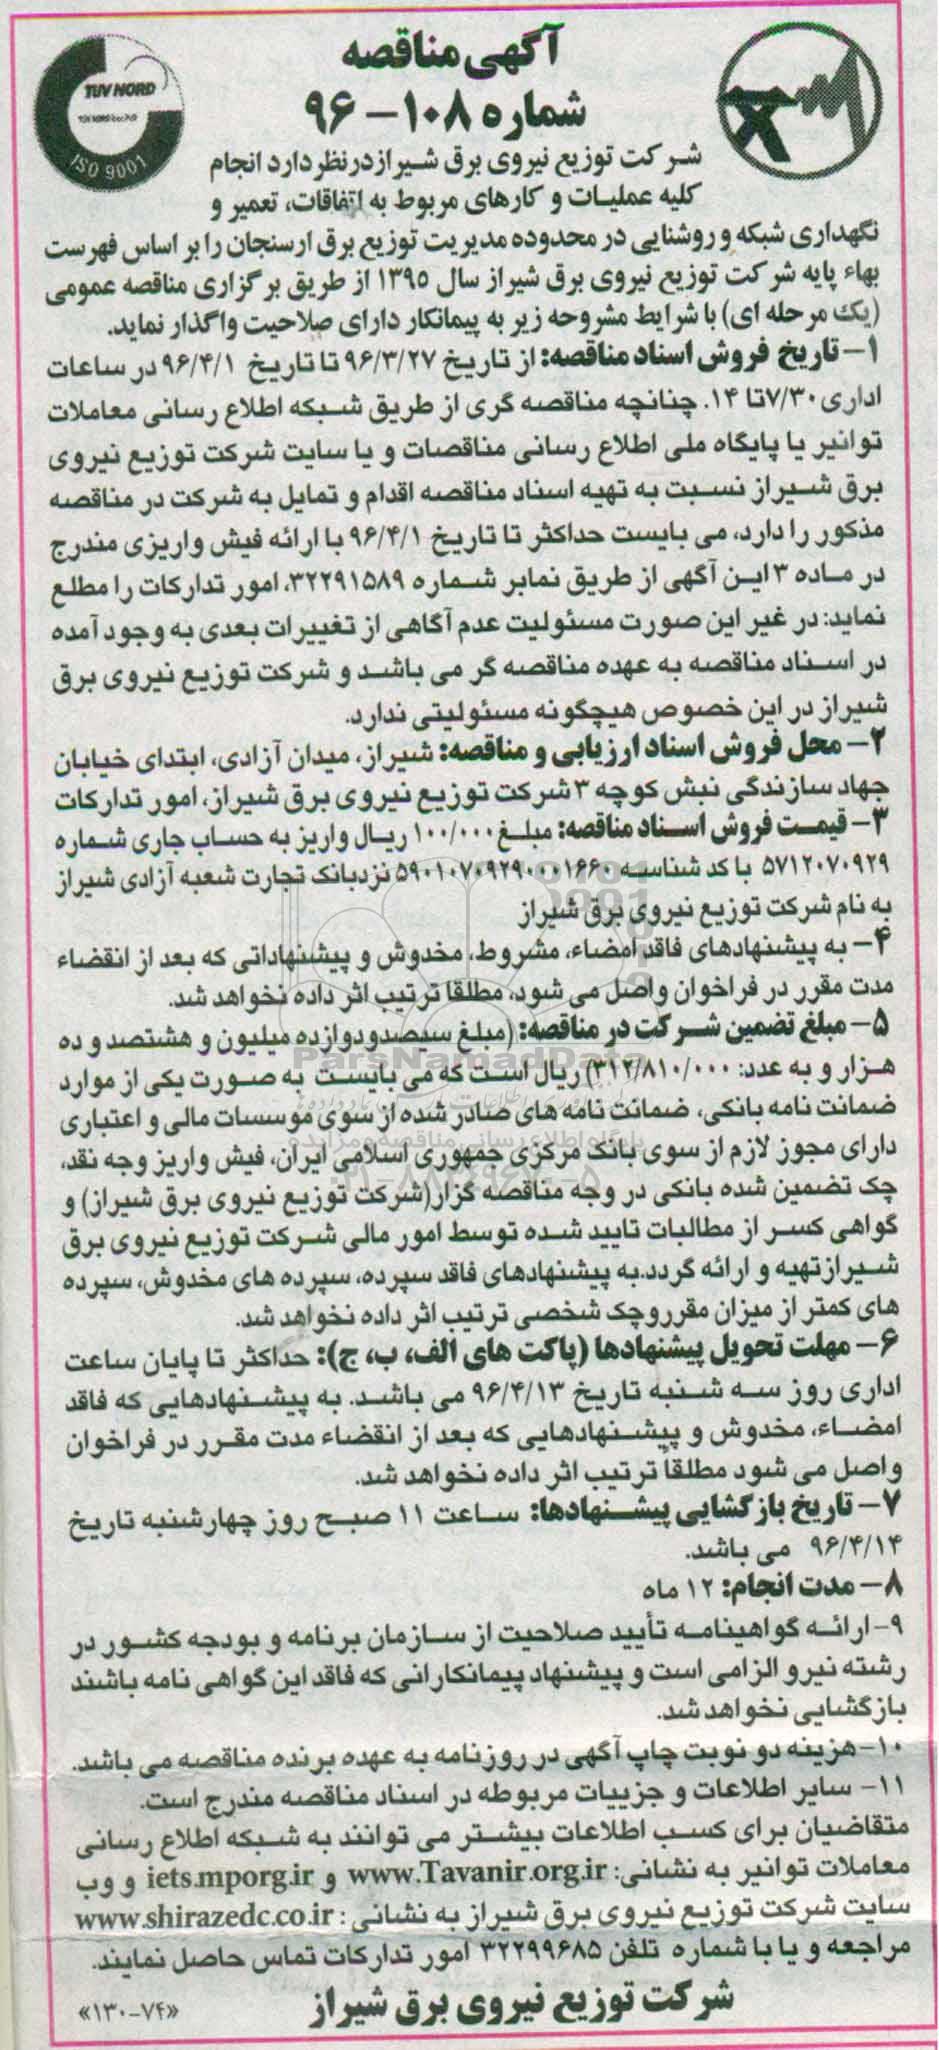 آگهی مناقصه
شماره ۱۰۸-۹۶
TUV NORD
ISO 9001
شرکت توزیع نیروی برق شیراز در نظر دارد انجام
کلیه عملیات و کارهای مربوط به اتفاقات، تعمیر و
نگهداری شبکه و روشنایی در محدوده مدیریت توزیع برق ارسنجان را بر اساس فهرست
بهاء پایه شرکت توزیع نیروی برق شیراز سال ۱۳۹۵ از طریق برگزاری مناقصه عمومی
(یک مرحله ای) با شرایط مشروحه زیر به پیمانکار دارای صلاحیت واگذار نماید.
۱- تاریخ فروش اسناد مناقصه: از تاریخ ۹۶/۳/۲۷ تا تاریخ ۹۶/۴/۱ در ساعات
اداری ۷/۳۰ تا ۱۴. چنانچه مناقصه گری از طریق شبکه اطلاع رسانی معاملات
توانیر یا پایگاه ملی اطلاع رسانی مناقصات و یا سایت شرکت توزیع نیروی
برق شیراز نسبت به تهیه اسناد مناقصه اقدام و تمایل به شرکت در مناقصه
مذکور را دارد، می بایست حداکثر تا تاریخ ۹۶/۴/۱ با ارائه فیش واریزی مندرج
در ماده ۳ این آگهی از طریق نمابر شماره ۳۲۲۹۱۵۸۹، امور تدارکات را مطلع
نماید: در غیر این صورت مسئولیت عدم آگاهی از تغییرات بعدی به وجود آمده
در اسناد مناقصه به عهده مناقصه گر می باشد و شرکت توزیع نیروی برق
شیراز در این خصوص هیچگونه مسئولیتی ندارد.
۲- محل فروش اسناد ارزیابی و مناقصه: شیراز، میدان آزادی، ابتدای خیابان
جهاد سازندگی نبش کوچه ۳ شرکت توزیع نیروی برق شیراز، امور تدارکات
۳- قیمت فروش اسناد مناقصه: مبلغ ۱۰۰/۰۰۰ ریال واریز به حساب جاری شماره
۵۷۱۲۰۷۰۹۲۹ با کد شناسه ۵۹۰۱۰۷۰۹۲۹۰۰۰۱۶۶۰ نزد بانک تجارت شعبه آزادی شیراز
به نام شرکت توزیع نیروی برق شیراز
۴- به پیشنهادهای فاقد امضاء، مشروط، مخدوش و پیشنهاداتی که بعد از انقضاء
مدت مقرر در فراخوان واصل می شود، مطلقا ترتیب اثر داده نخواهد شد.
۵- مبلغ تضمین شرکت در مناقصه: (مبلغ سیصد و دوازده میلیون و هشتصد و ده
هزار و به عدد: ۳۱۲/۸۱۰/۰۰۰) ریال است که می بایست به صورت یکی از موارد
ضمانت نامه بانکی، ضمانت نامه های صادر شده از سوی موسسات مالی و اعتباری
دارای مجوز لازم از سوی بانک مرکزی جمهوری اسلامی ایران، فیش واریز وجه نقد،
چک تضمین شده بانکی در وجه مناقصه گزار(شرکت توزیع نیروی برق شیراز) و
گواهی کسر از مطالبات تایید شده توسط امور مالی شرکت توزیع نیروی برق
شیراز تهیه و ارائه گردد.به پیشنهادهای فاقد سپرده، سپرده های مخدوش، سپرده
های کمتر از میزان مقرر و چک شخصی ترتیب اثر داده نخواهد شد.
۶- مهلت تحویل پیشنهادها (پاکت های الف، ب، ج): حداکثر تا پایان ساعت
اداری روز سه شنبه تاریخ ۹۶/۴/۱۳ می باشد. به پیشنهادهایی که فاقد
امضاء، مخدوش و پیشنهادهایی که بعد از انقضاء مدت مقرر در فراخوان
واصل می شود مطلقاً ترتیب اثر داده نخواهد شد.
۷- تاریخ بازگشایی پیشنهادها: ساعت ۱۱ صبح روز چهارشنبه تاریخ
۹۶/۴/۱۴ می باشد.
۸- مدت انجام: ۱۲ ماه
۹- ارائه گواهینامه تأیید صلاحیت از سازمان برنامه و بودجه کشور در
رشته نیرو الزامی است و پیشنهاد پیمانکارانی که فاقد این گواهی نامه باشند
بازگشایی نخواهد شد.
۱۰- هزینه دو نوبت چاپ آگهی در روزنامه به عهده برنده مناقصه می باشد.
۱۱- سایر اطلاعات و جزییات مربوطه در اسناد مناقصه مندرج است.
متقاضیان برای کسب اطلاعات بیشتر می توانند به شبکه اطلاع رسانی
معاملات توانیر به نشانی: www.Tavanir.org.ir و iets.mporg.ir و وب
سایت شرکت توزیع نیروی برق شیراز به نشانی : www.shirazedc.co.ir
مراجعه و یا با شماره تلفن ۳۲۲۹۹۶۸۵ امور تدارکات تماس حاصل نمایند.
شرکت توزیع نیروی برق شیراز
«۱۳۰-۷۴»
ParsNamadData
پایگاه اطلاع رسانی مناقصه و مزایده